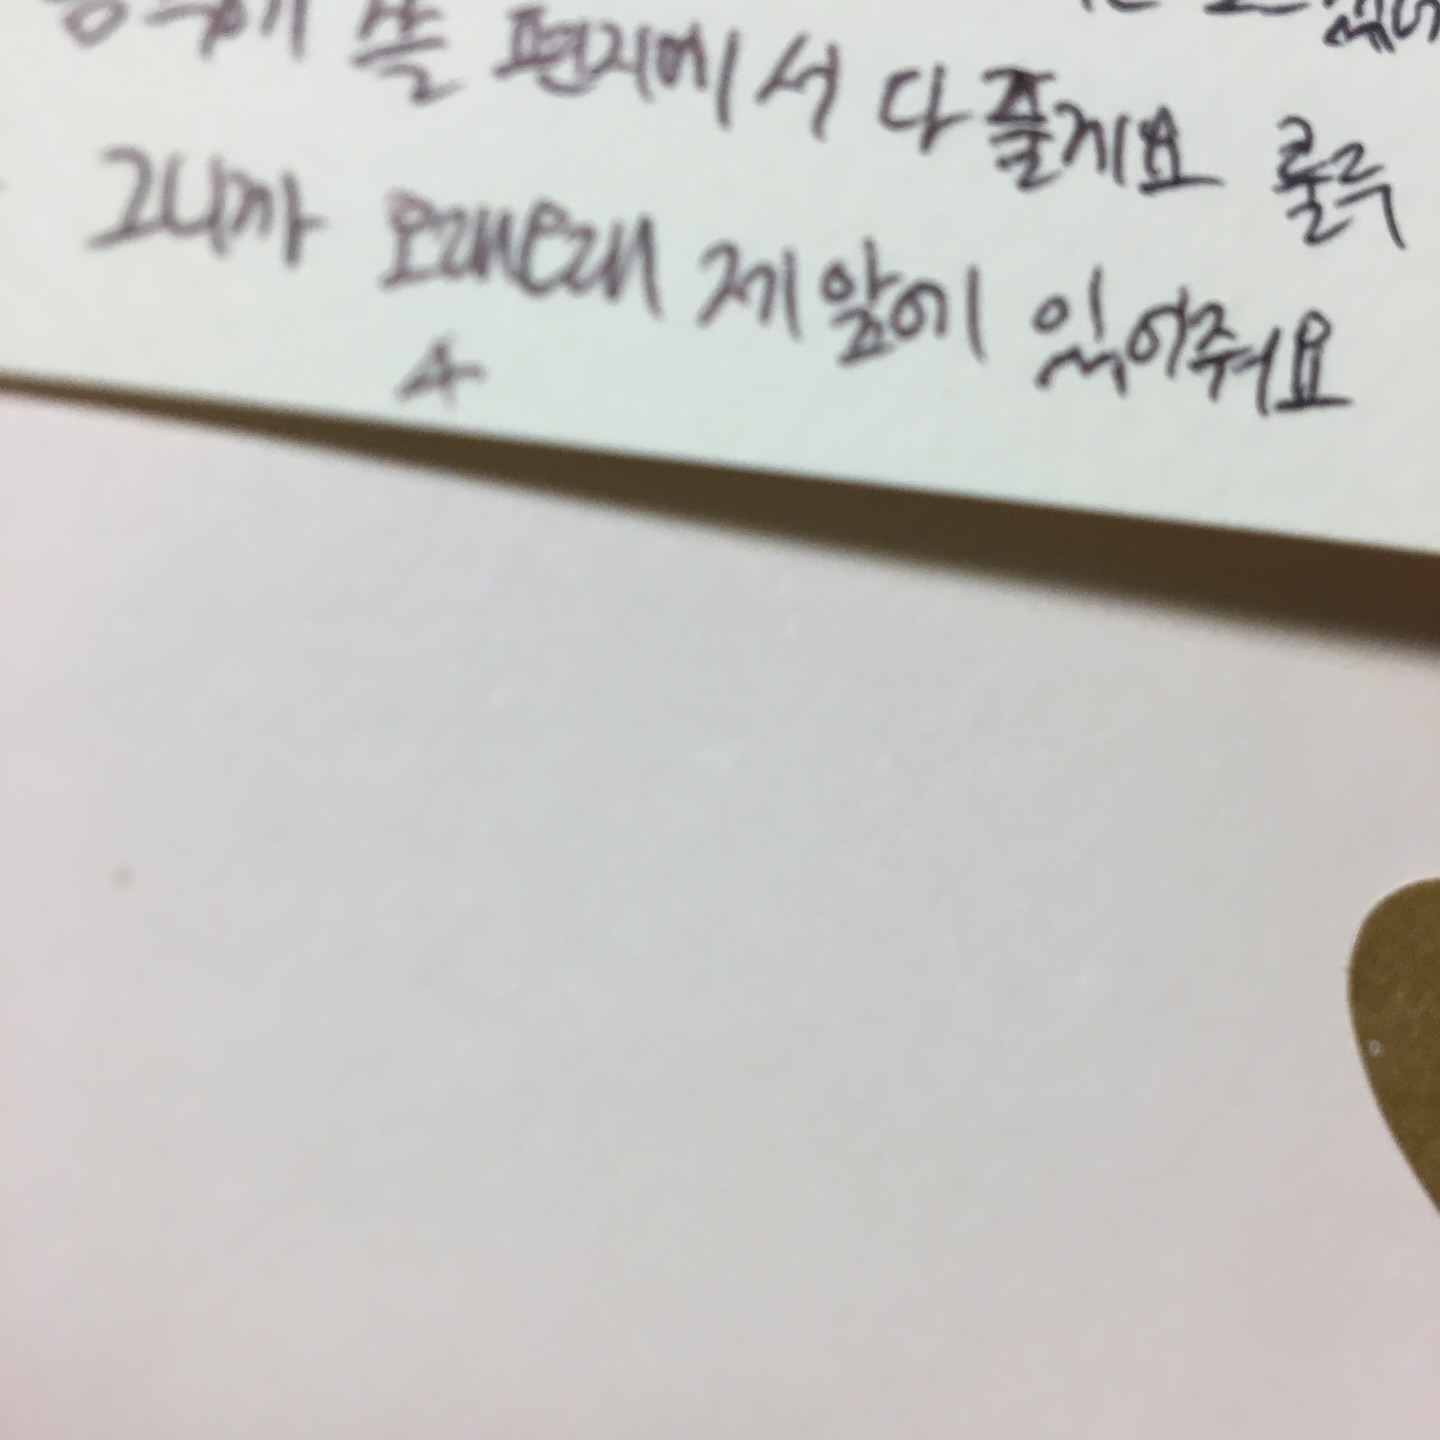 쓸 편지에서 다 줄게요 룰루
그니까 오래오래 제 앞에 있어줘요